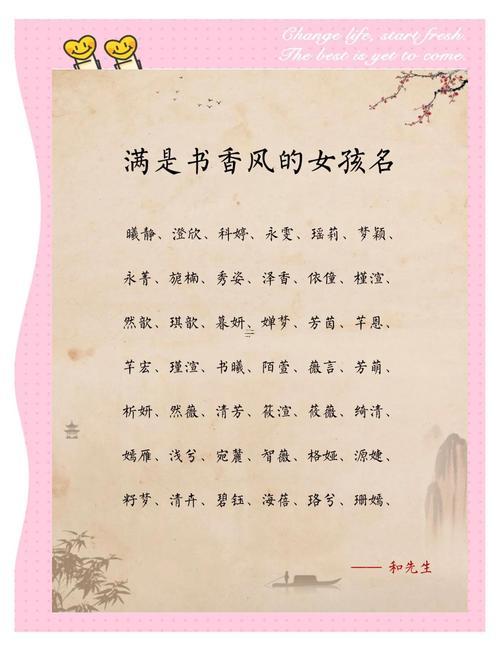 Change life, start fresh.
The best is yet to come.
满是书香风的女孩名
曦静、澄欣、科婷、永雯、瑶莉、梦颖、
永菁、旎楠、秀姿、泽香、依僮、槿渲、
然歆、琪歆、暮妍、婵梦、芳茵、芊恩、
芊宏、瑾渲、书曦、陌萱、薇言、芳萌、
析妍、然薇、清芳、筱渲、筱薇、绮清、
嫣雁、浅兮、宛麓、智薇、格娅、源婕、
籽梦、清卉、碧钰、海蓓、珞兮、珊嫣、
—— 和先生